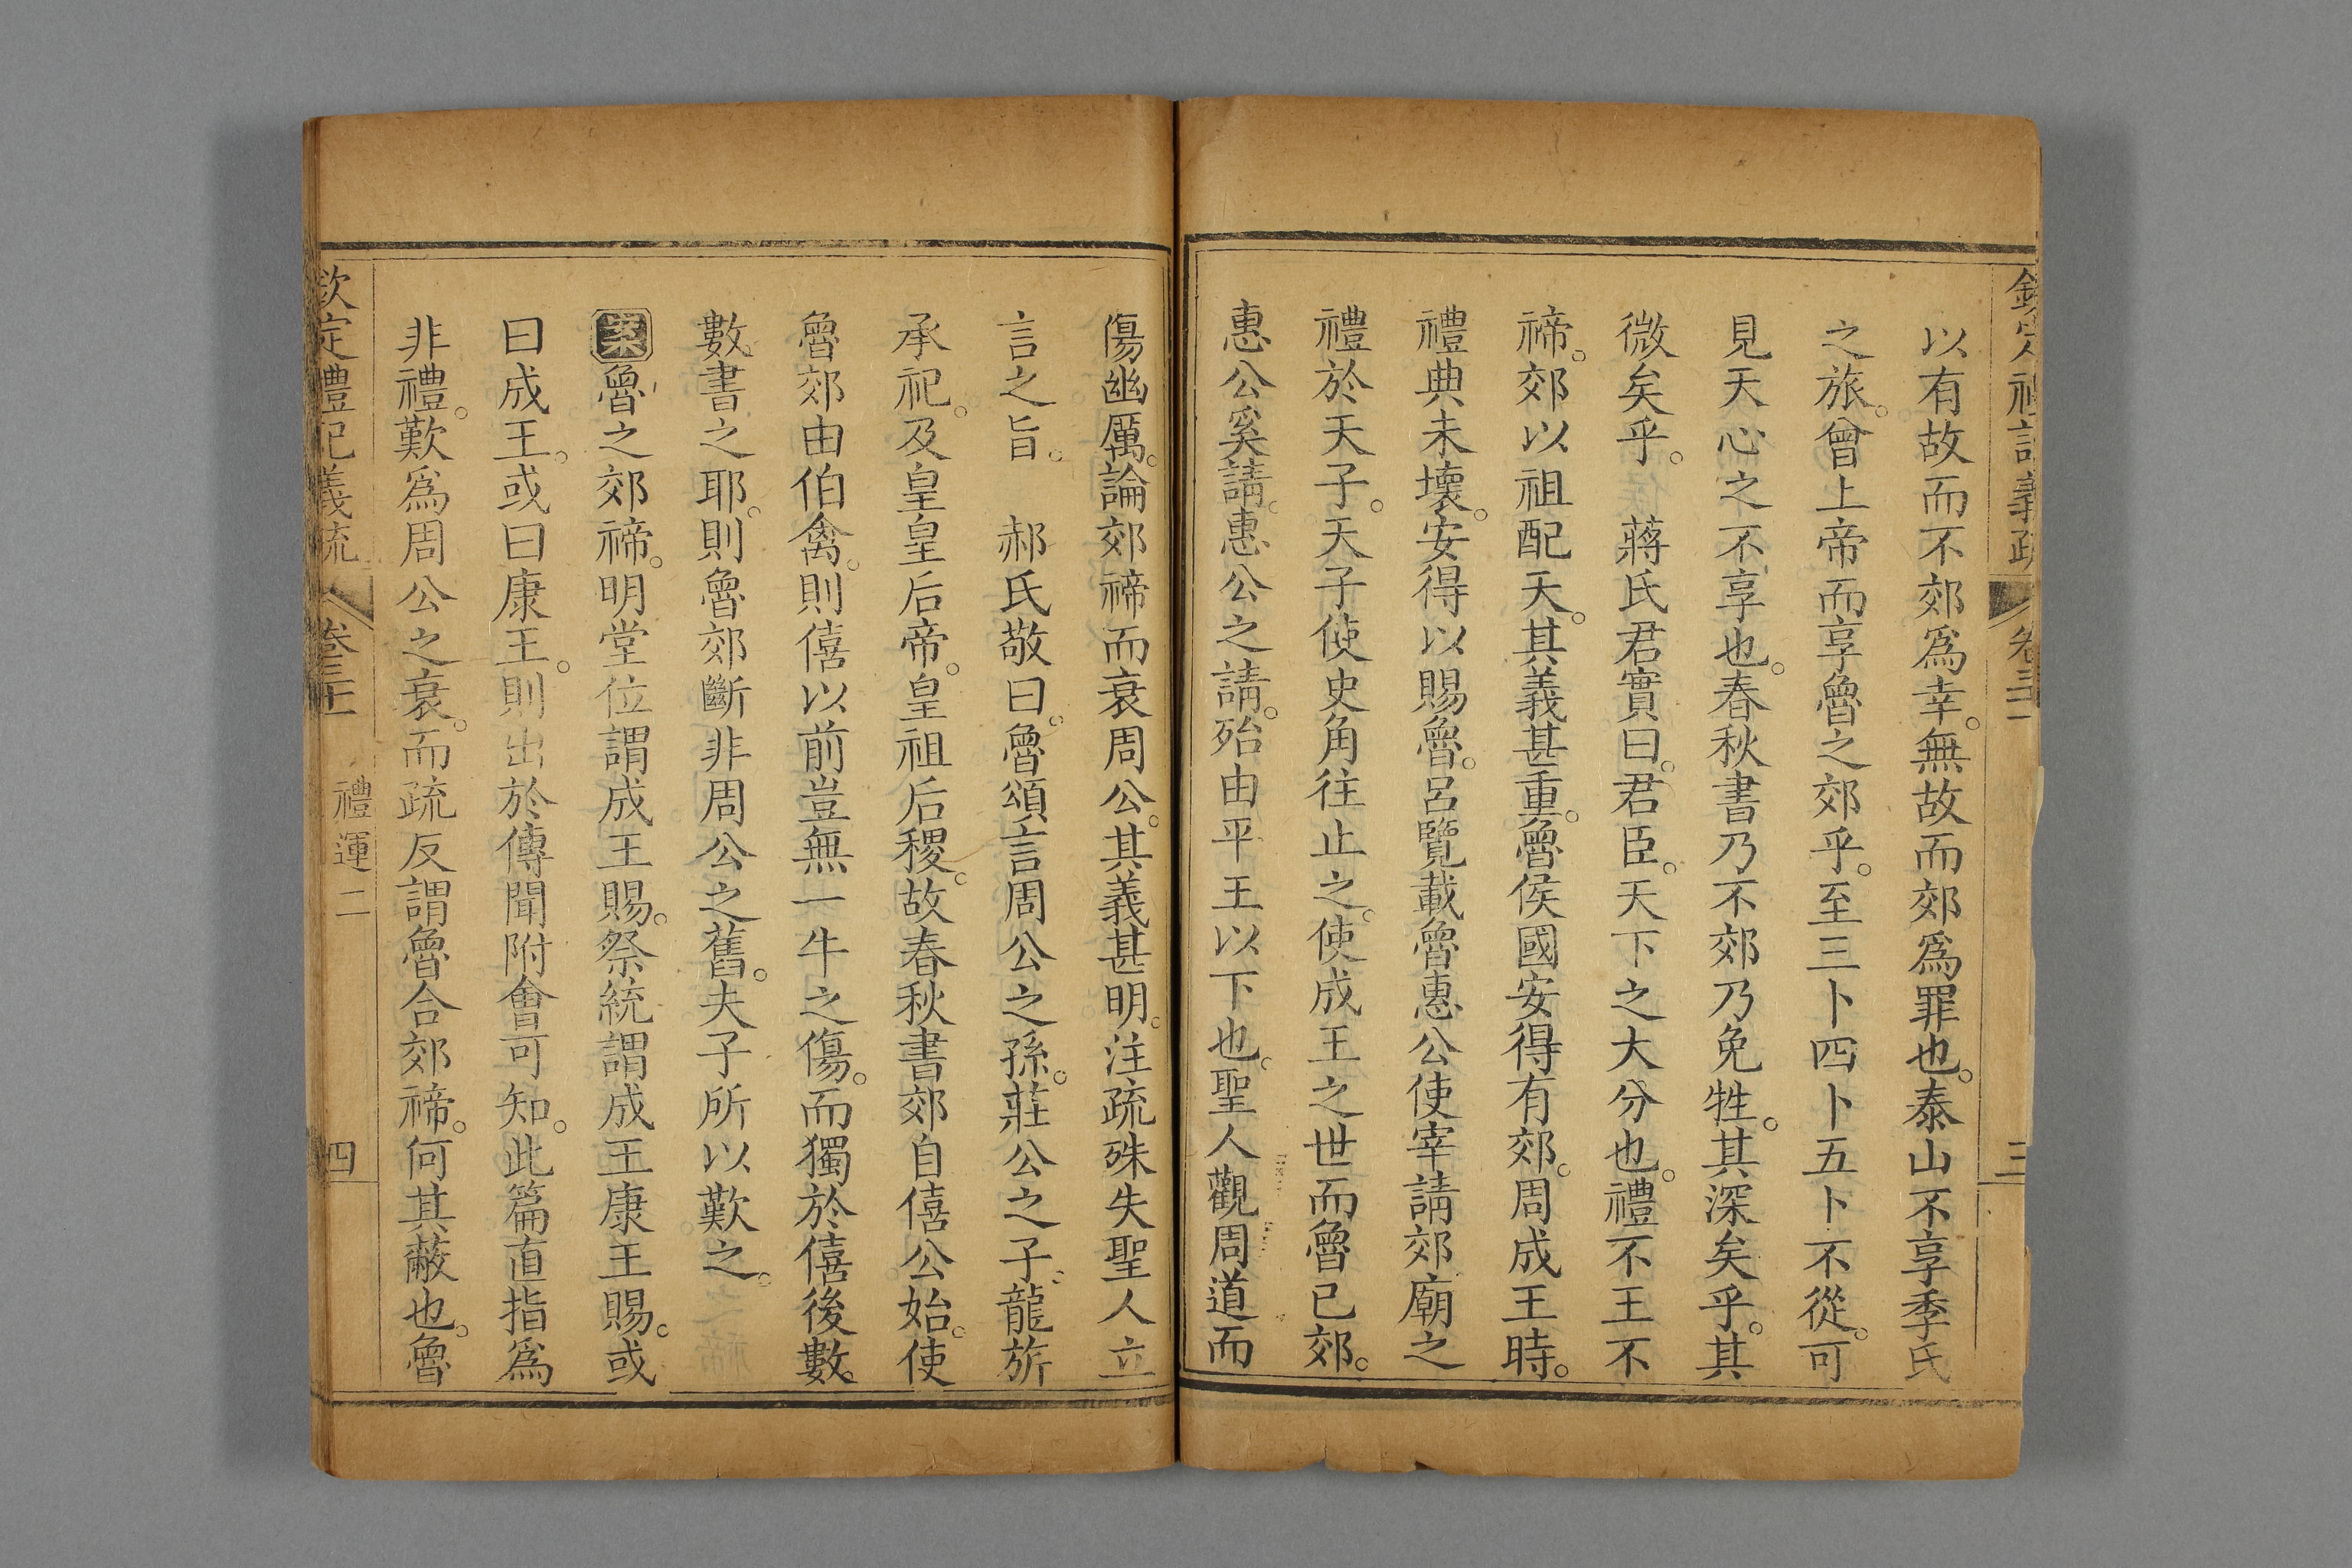 以有故而不郊爲幸。無故而郊爲罪也。泰山不享季氏
之旅。曾上帝而享魯之郊乎。至三卜四卜五卜不從。可
見天心之不享也。春秋書乃不郊乃免牲。其深矣乎。其
微矣乎。　蔣氏君實曰。君臣。天下之大分也。禮不王不
禘。郊以祖配天。其義甚重。魯侯國安得有郊。周成王時。
禮典未壞。安得以賜魯。呂覽載魯惠公使宰請郊廟之
禮於天子。天子使史角往止之。使成王之世而魯已郊。
惠公奚請。惠公之請。殆由平王以下也。聖人觀周道而
傷幽厲。論郊禘而衰周公。其義甚明。注疏殊失聖人立
言之旨。　郝氏敬曰。魯頌言周公之孫。莊公之子。龍旂
承祀。及皇皇后帝。皇祖后稷。故春秋書郊自僖公始。使
魯郊由伯禽。則僖以前豈無一牛之傷。而獨於僖後數。
數書之耶。則魯郊斷非周公之舊。夫子所以歎之。
案魯之郊禘。明堂位謂成王賜。祭統謂成王康王賜。或
曰成王。或曰康王。則出於傳聞附會可知。此篇直指爲
非禮。歎爲周公之衰。而疏反謂魯合郊禘。何其蔽也。魯
欽定禮記義疏　卷三十一　禮運二　四